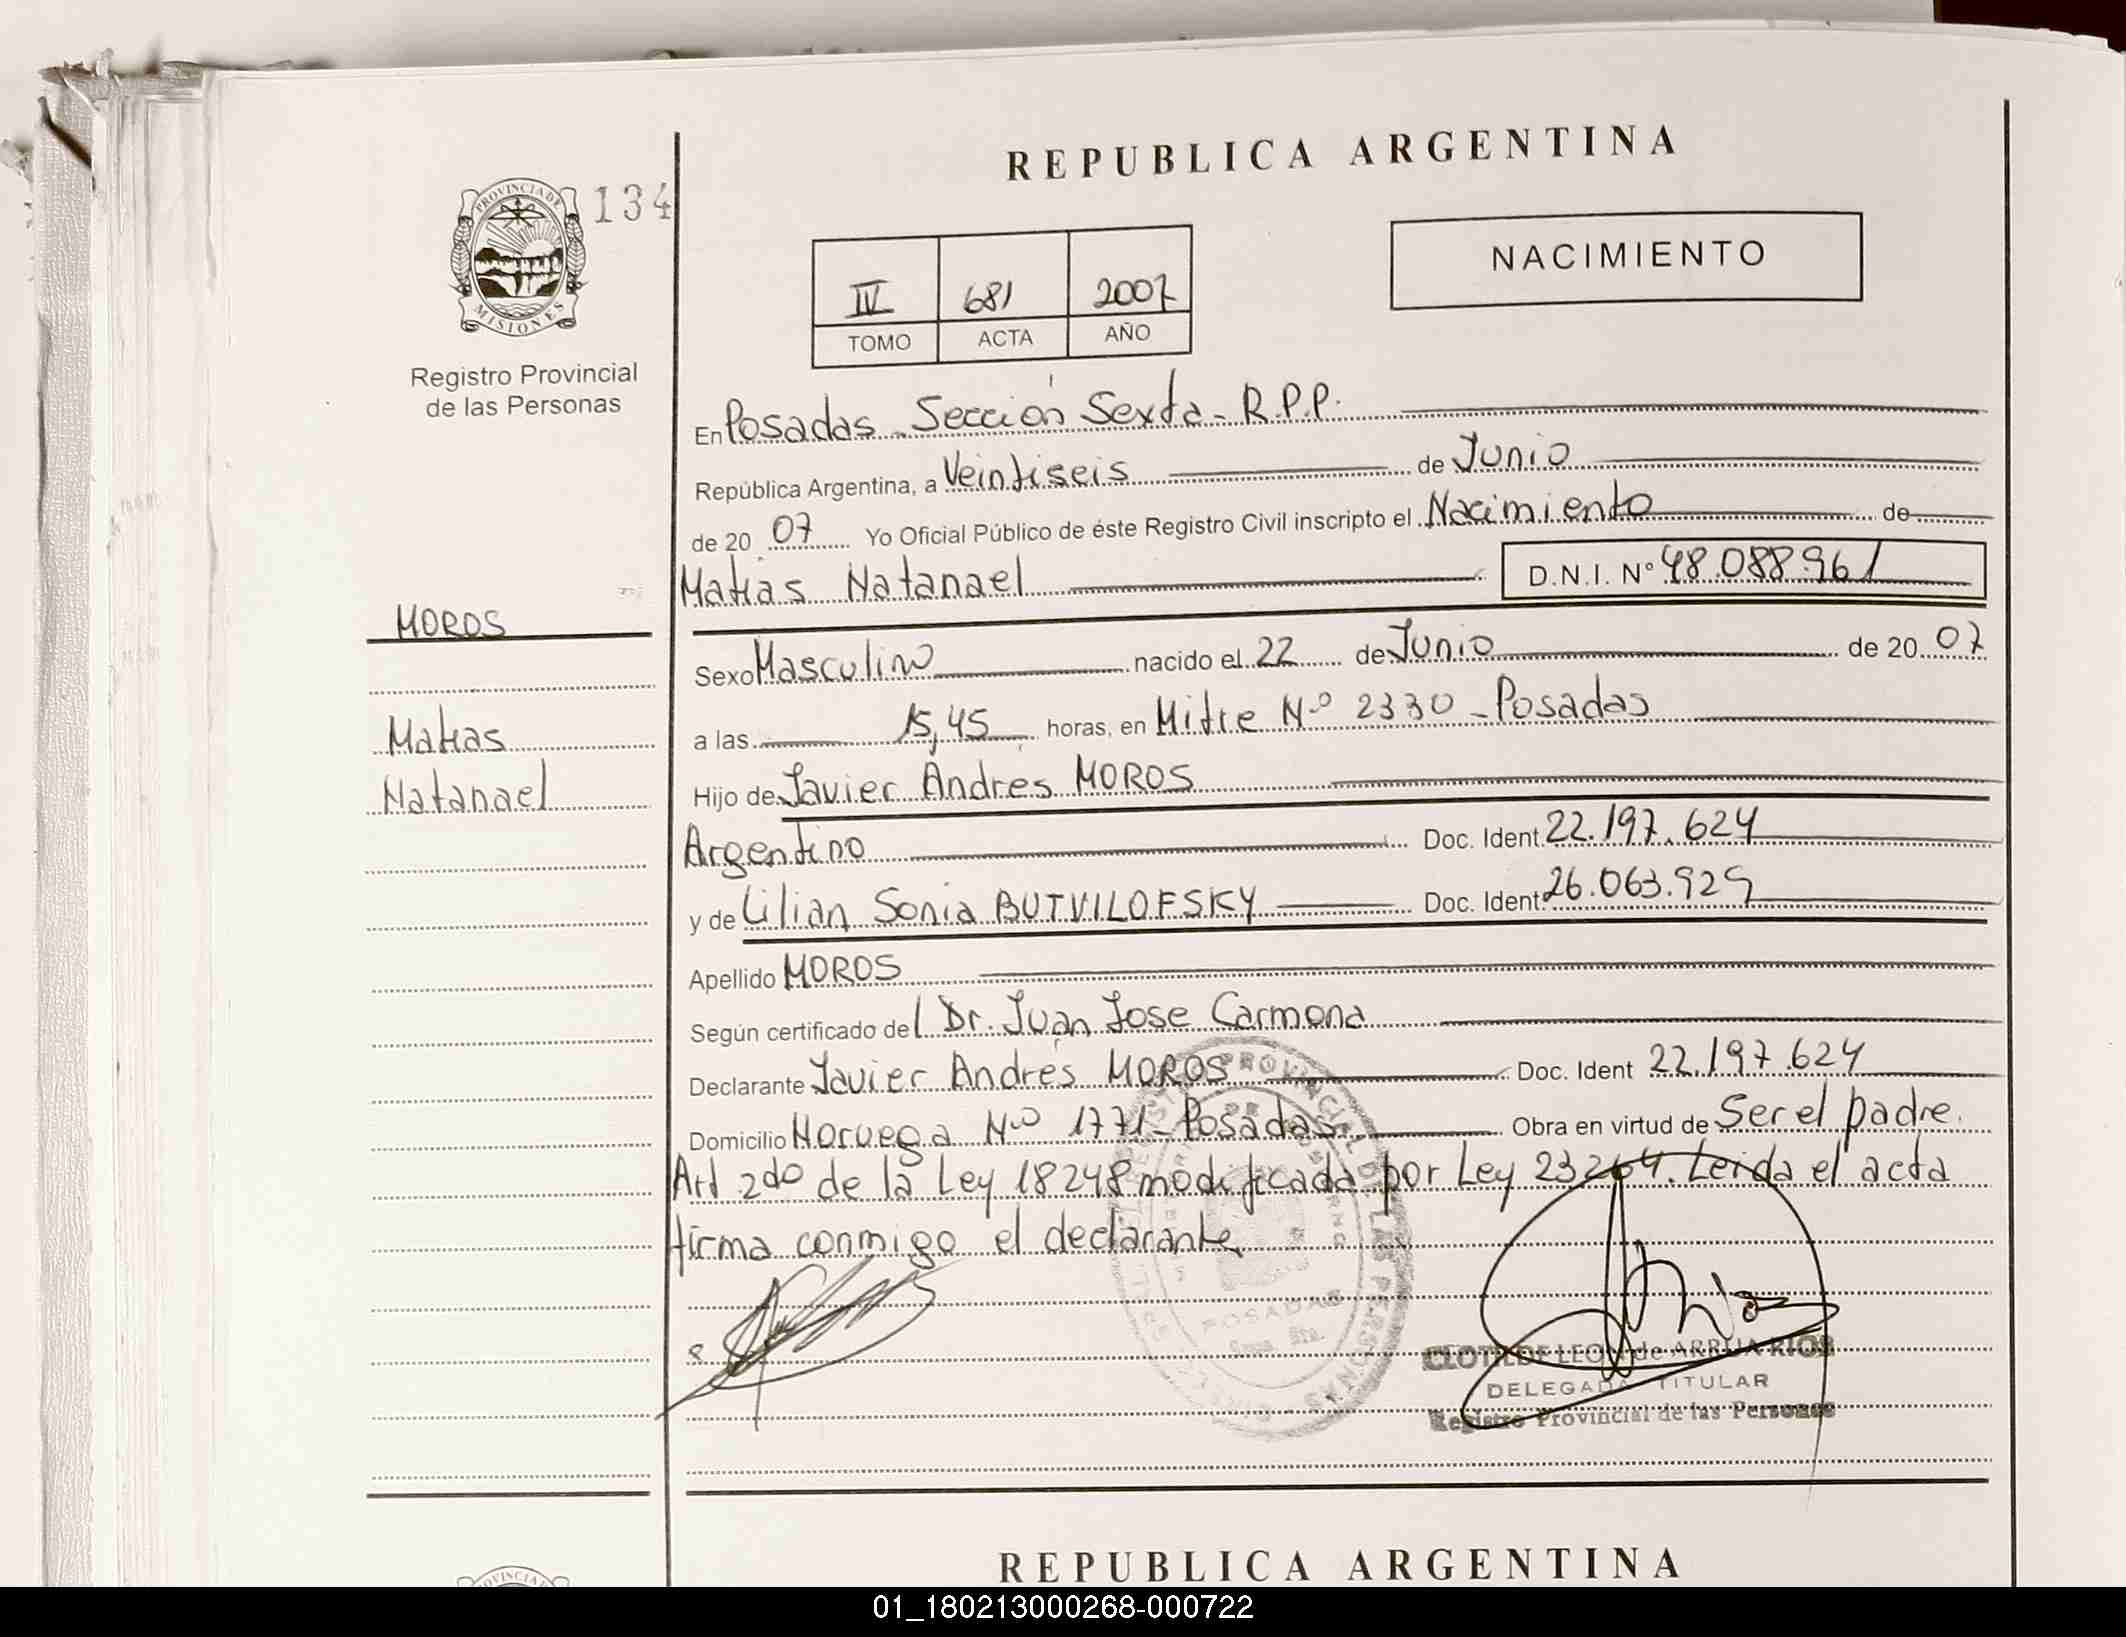 REPUBLICA ARGENTINA
PROVINCIA DE
MISIONES
134
NACIMIENTO
IV 681 2007
TOMO ACTA AÑO
Registro Provincial
de las Personas
En Posadas - Sección Sexta - R.P.P.
República Argentina, a Veintiseis de Junio
de 20 07 Yo Oficial Público de éste Registro Civil inscripto el Nacimiento de
Matias Natanael D.N.I. Nº 48.088.961
MOROS
Sexo Masculino nacido el 22 de Junio de 20 07
Matias
a las 15,45 horas, en Mitre Nº 2330 - Posadas
Natanael
Hijo de Javier Andres MOROS
Argentino Doc. Ident. 22.197.624
y de Lilian Sonia BUTVILOFSKY Doc. Ident. 26.063.929
Apellido MOROS
Según certificado del Dr. Juan Jose Carmona
Declarante Javier Andrés MOROS Doc. Ident 22.197.624
Domicilio Noruega Nº 1771 - Posadas Obra en virtud de Ser el padre.
Art 2do de la Ley 18248 modificada por Ley 23264. Leida el acta
firma conmigo el declarante
POSADAS
CLOTILDE LEON de ARRUA RIOS
DELEGADA TITULAR
Registro Provincial de las Personas
REPUBLICA ARGENTINA
01_180213000268-000722